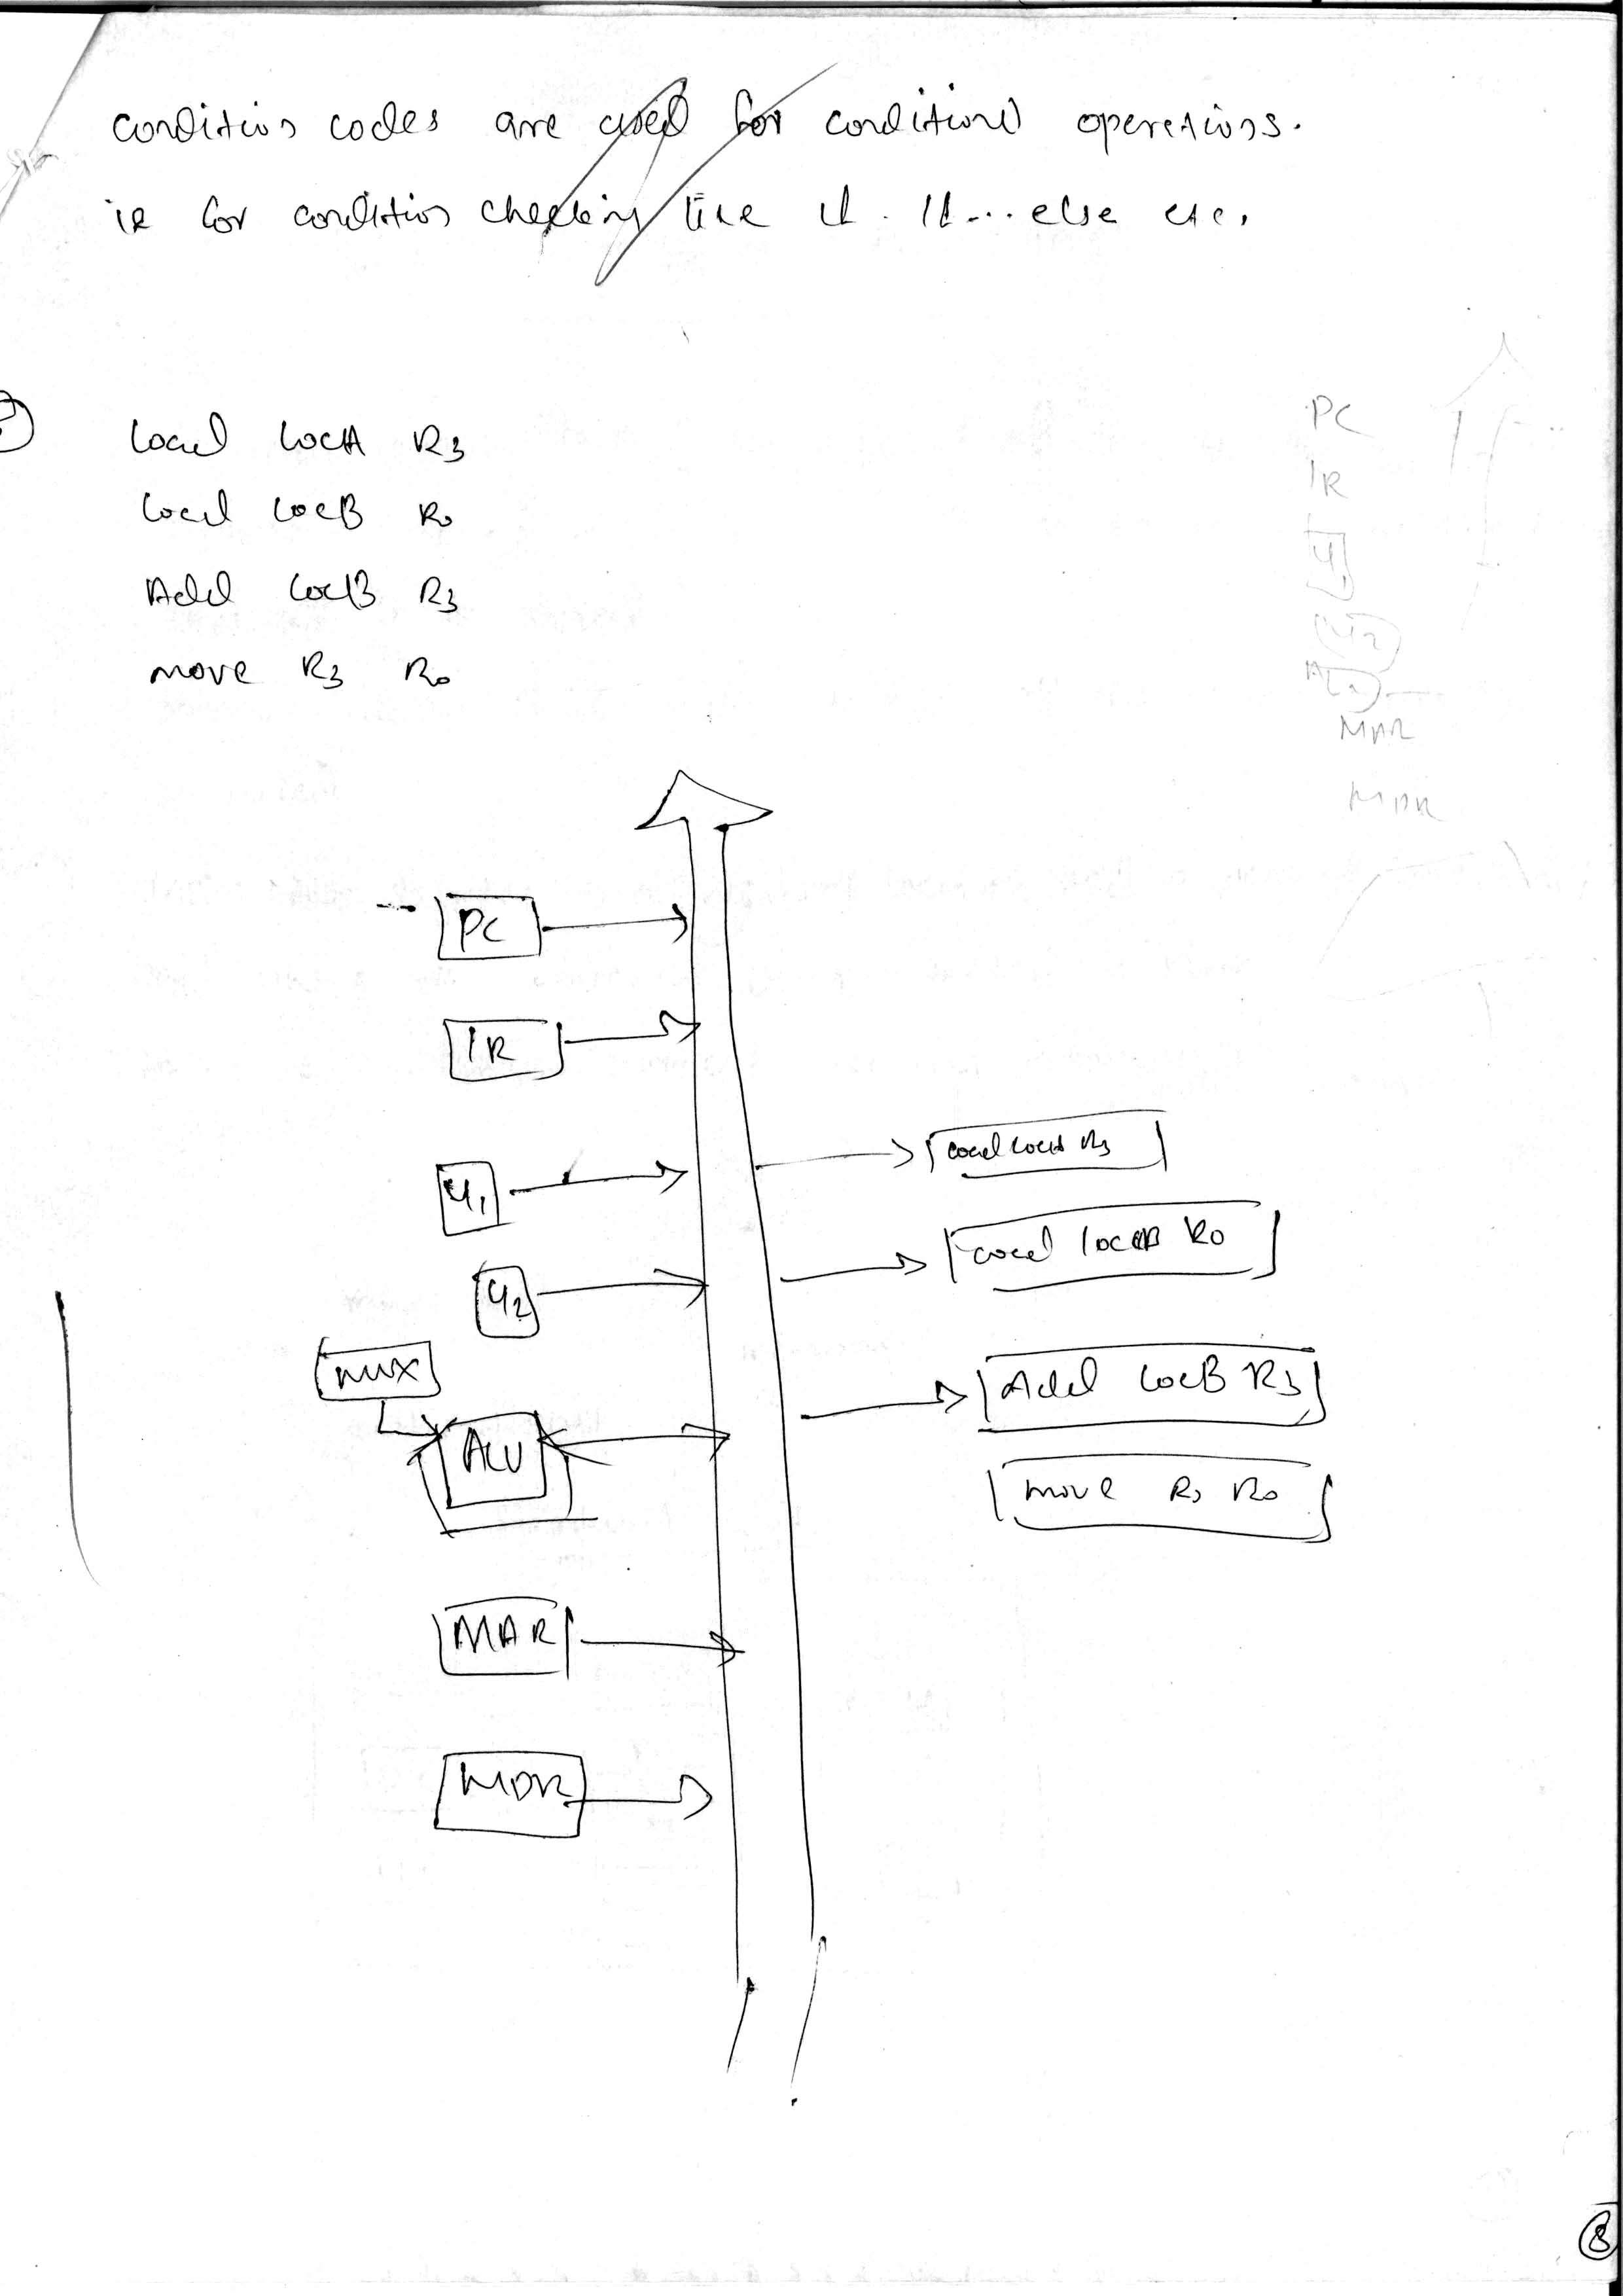 condition codes are used for conditional operations.
ie for condition checking like if. If... else etc.
Load LocA R3
Load LocB R0
Add LocB R3
move R3 R0
PC
IR
Y1
Y2
MAR
MDR
PC
IR
Load LocA R3
Y1
Load LocB R0
Y2
MUX
Add LocB R3
ALU
move R3 R0
MAR
MDR
8